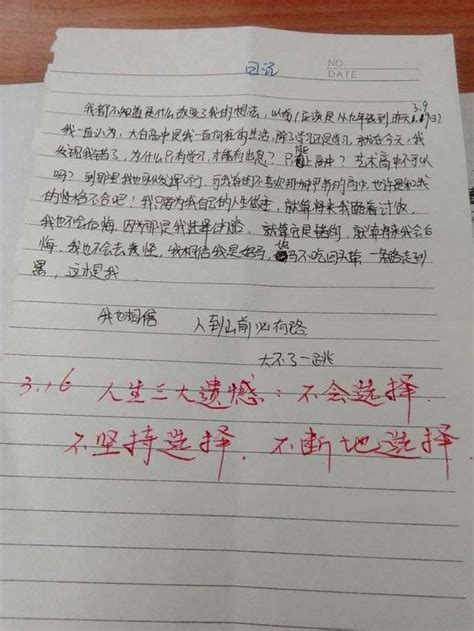 日记
NO.
DATE
3.9
我都不知道是什么改变了我的想法,以前(应该是从九年级到昨天
我一直认为,大白高中是我一直向往的生活,除了学习还是学习,就在今天,我
发现我错了,为什么只有学习才能有出息?只能上高中?艺术高中不可以
吗?到那里我也可以发挥
的性格不合吧!我只需为我自己的人生做主,就算将来我路着讨饭,
我也不会后悔,因为那是我选择的路,就算它是错的,就算将来我会后
悔,我也不会去责怪,我相信我是好马,好马不吃回头草,一条路走到
黑,这才是我.
我也相信 人到山前必有路
大不了一跳
3.16 人生三大遗憾:不会选择,
不坚持选择,不断地选择.